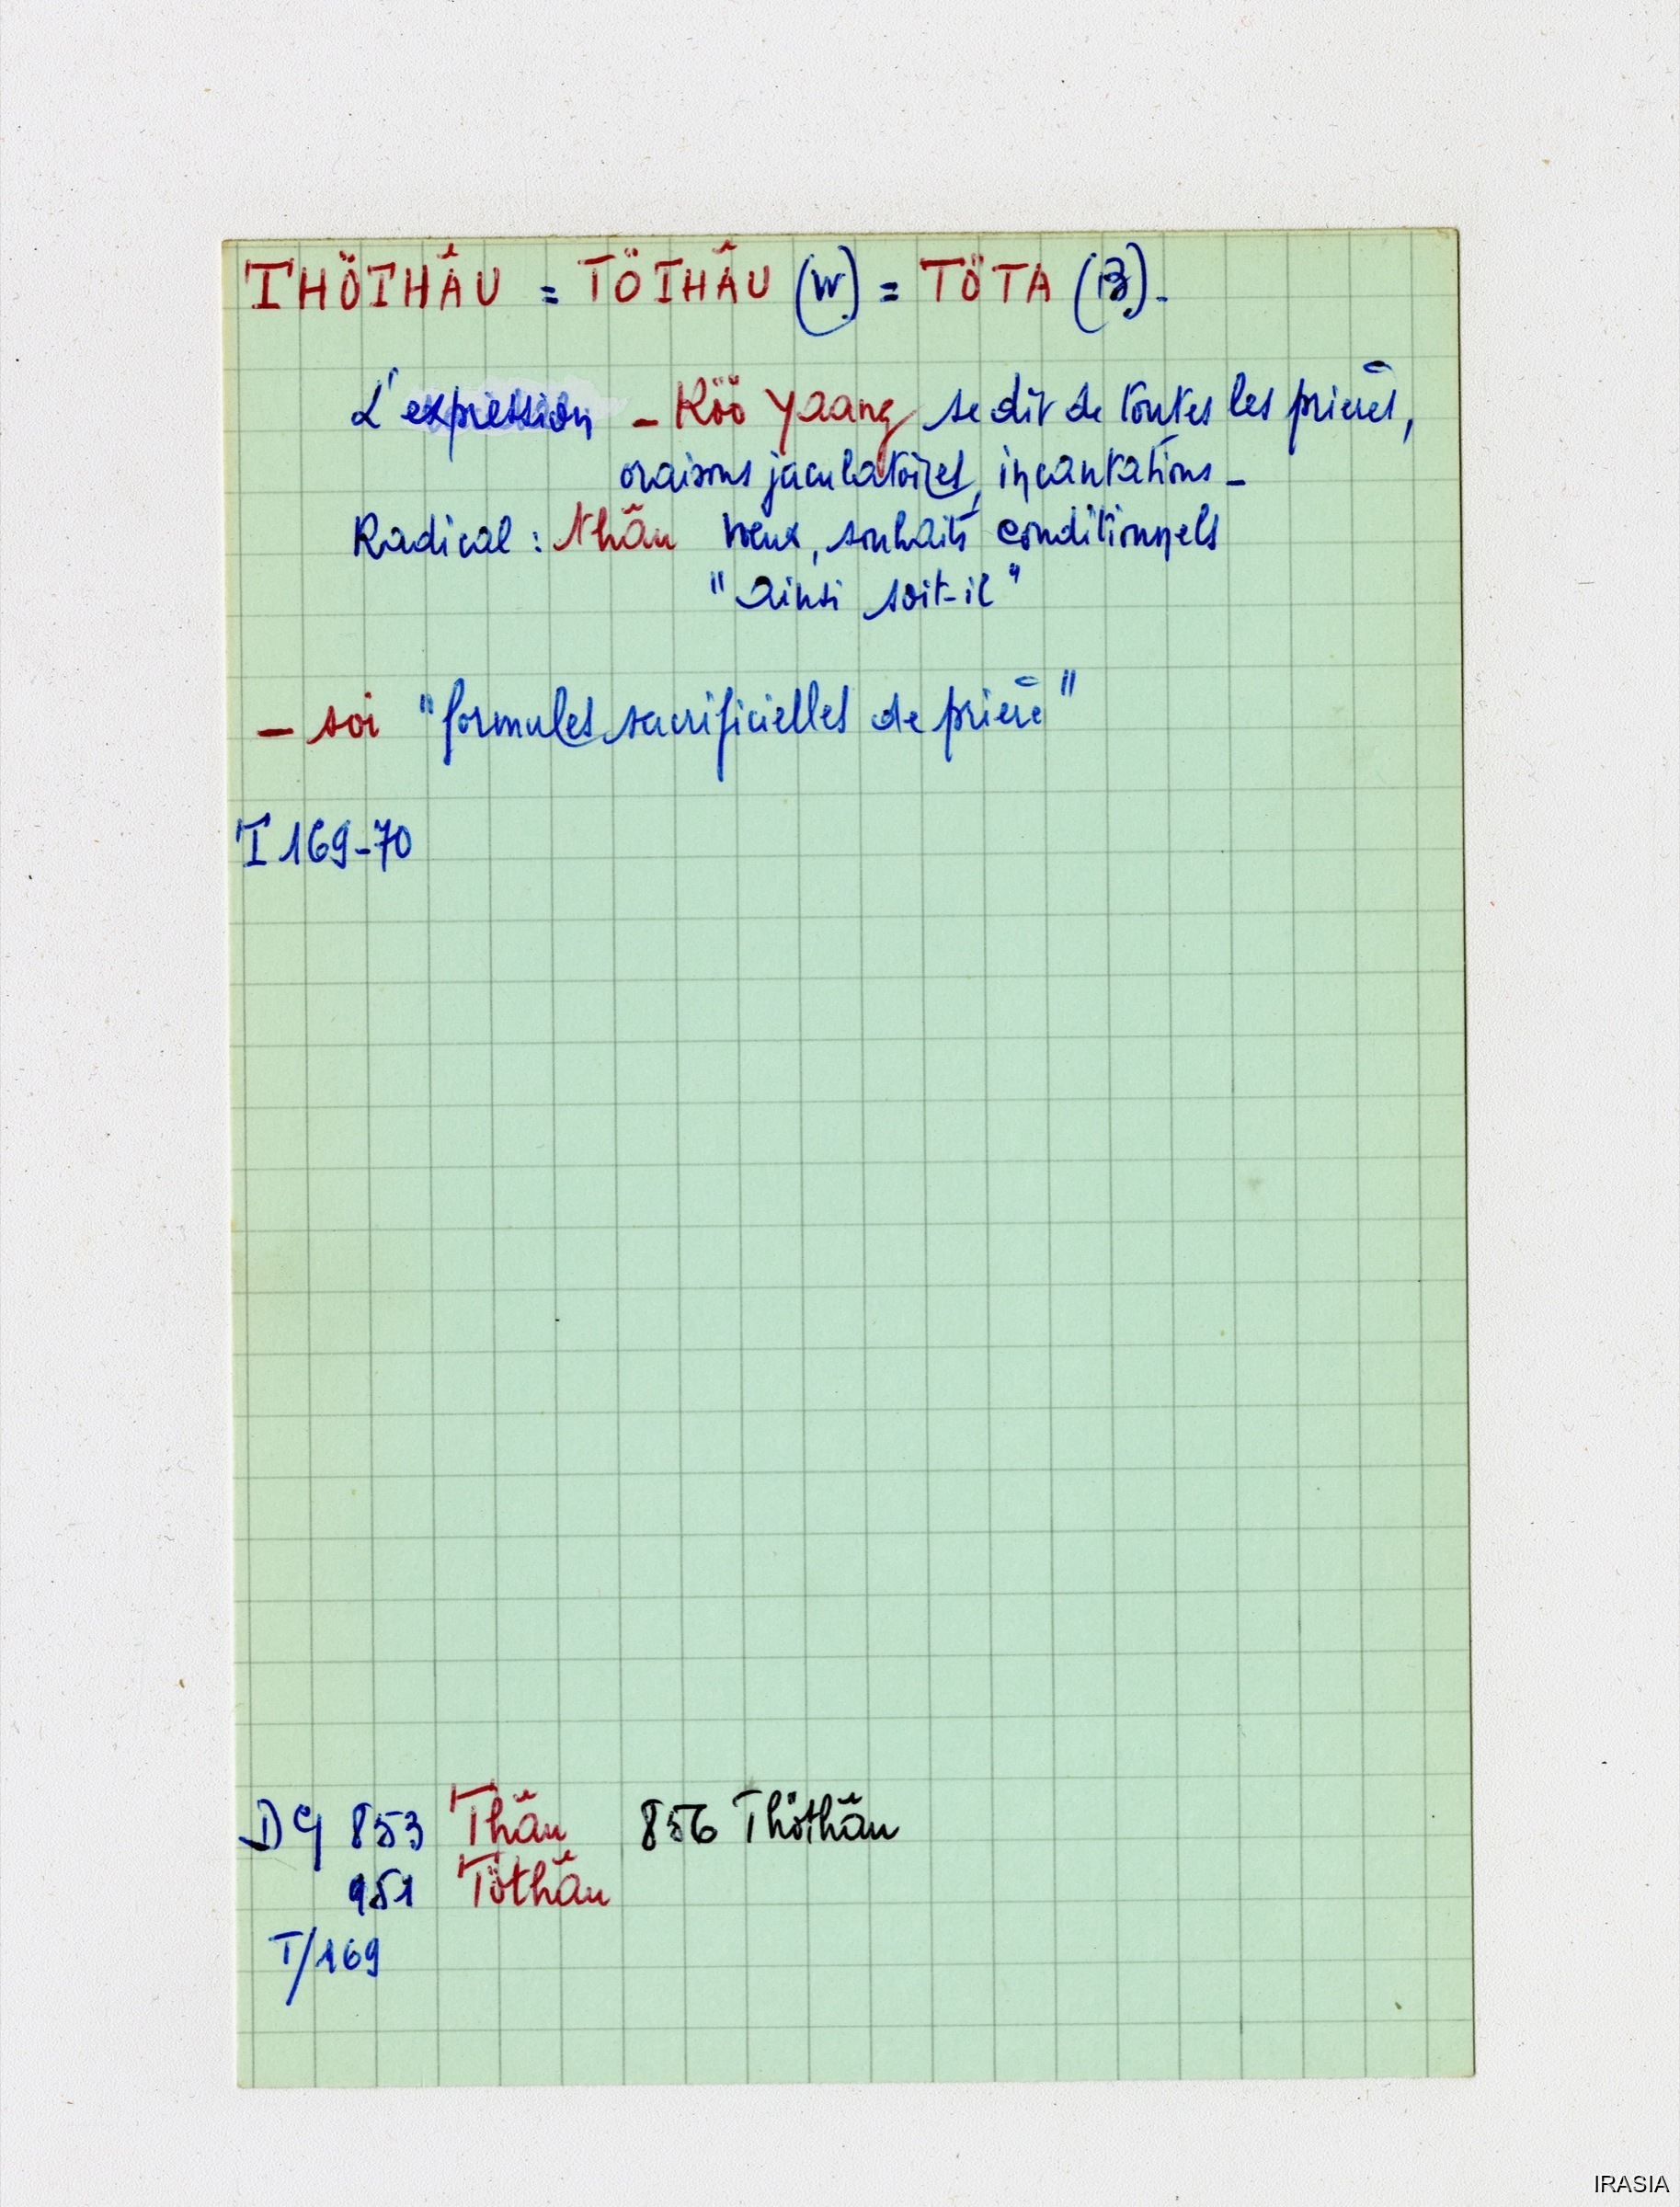 THÖTHÂU = TÖTHÂU (W.) = TÖTA (B.) -
L'expression - Köö yaang se dit de toutes les prières,
oraisons jaculatoires, incantations -
Radical : thâu vœux, souhaits conditionnels
"ainsi soit-il"
- soi "formules sacrificielles de prière"
T 169-70
DG 853 Thâu 856 Thöthâu
951 Töthâu
T/169
IRASIA